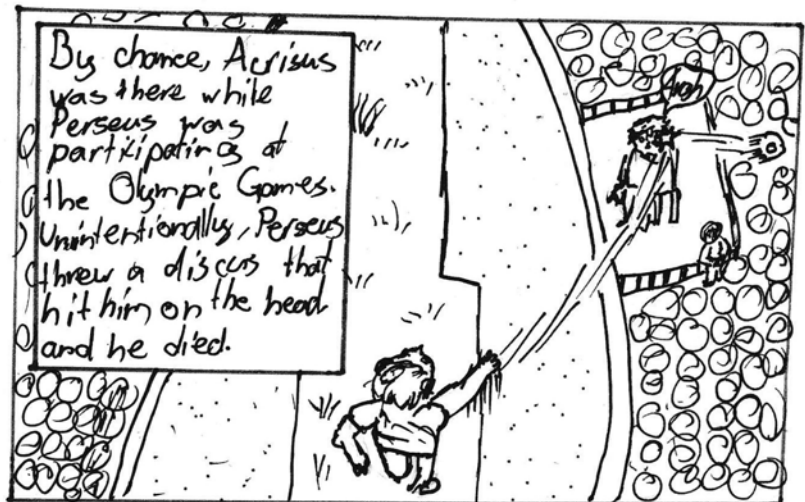 By chance, Acrisus
was there while
Perseus was
participating at
the Olympic Games.
Unintentionally, Perseus
threw a discus that
hit him on the head
and he died.
Argh